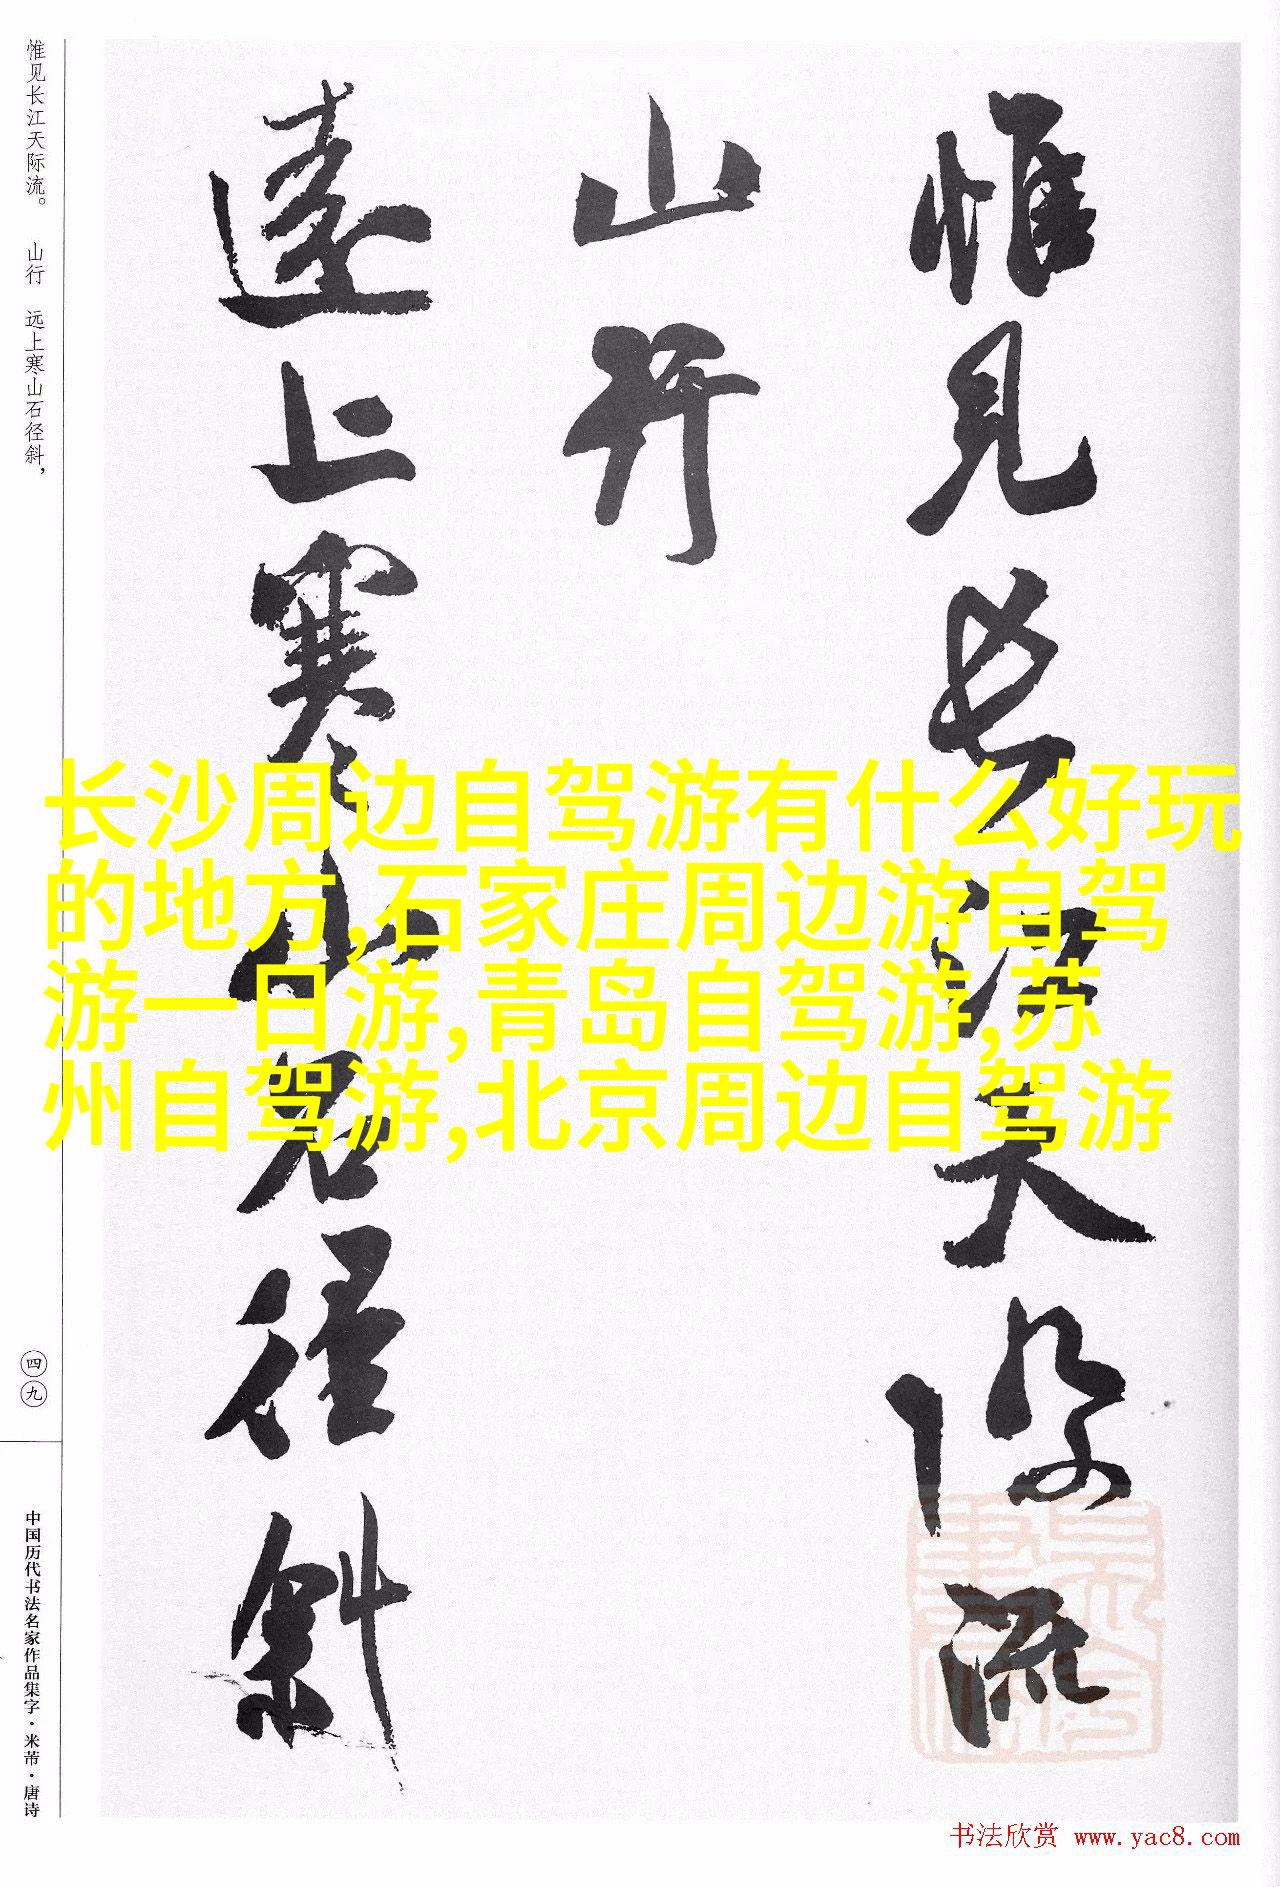 惟见长江天际流。 山行 远上寒山石径斜，
惟見長江天際流
山行
遠上寒山石徑斜
长沙周边自驾游有什么好玩
的地方,石家庄周边游自驾
游一日游,青岛自驾游,苏
州自驾游,北京周边自驾游
四九
中国历代书法名家作品集字·米芾·唐诗
书法欣赏 www.yac8.com